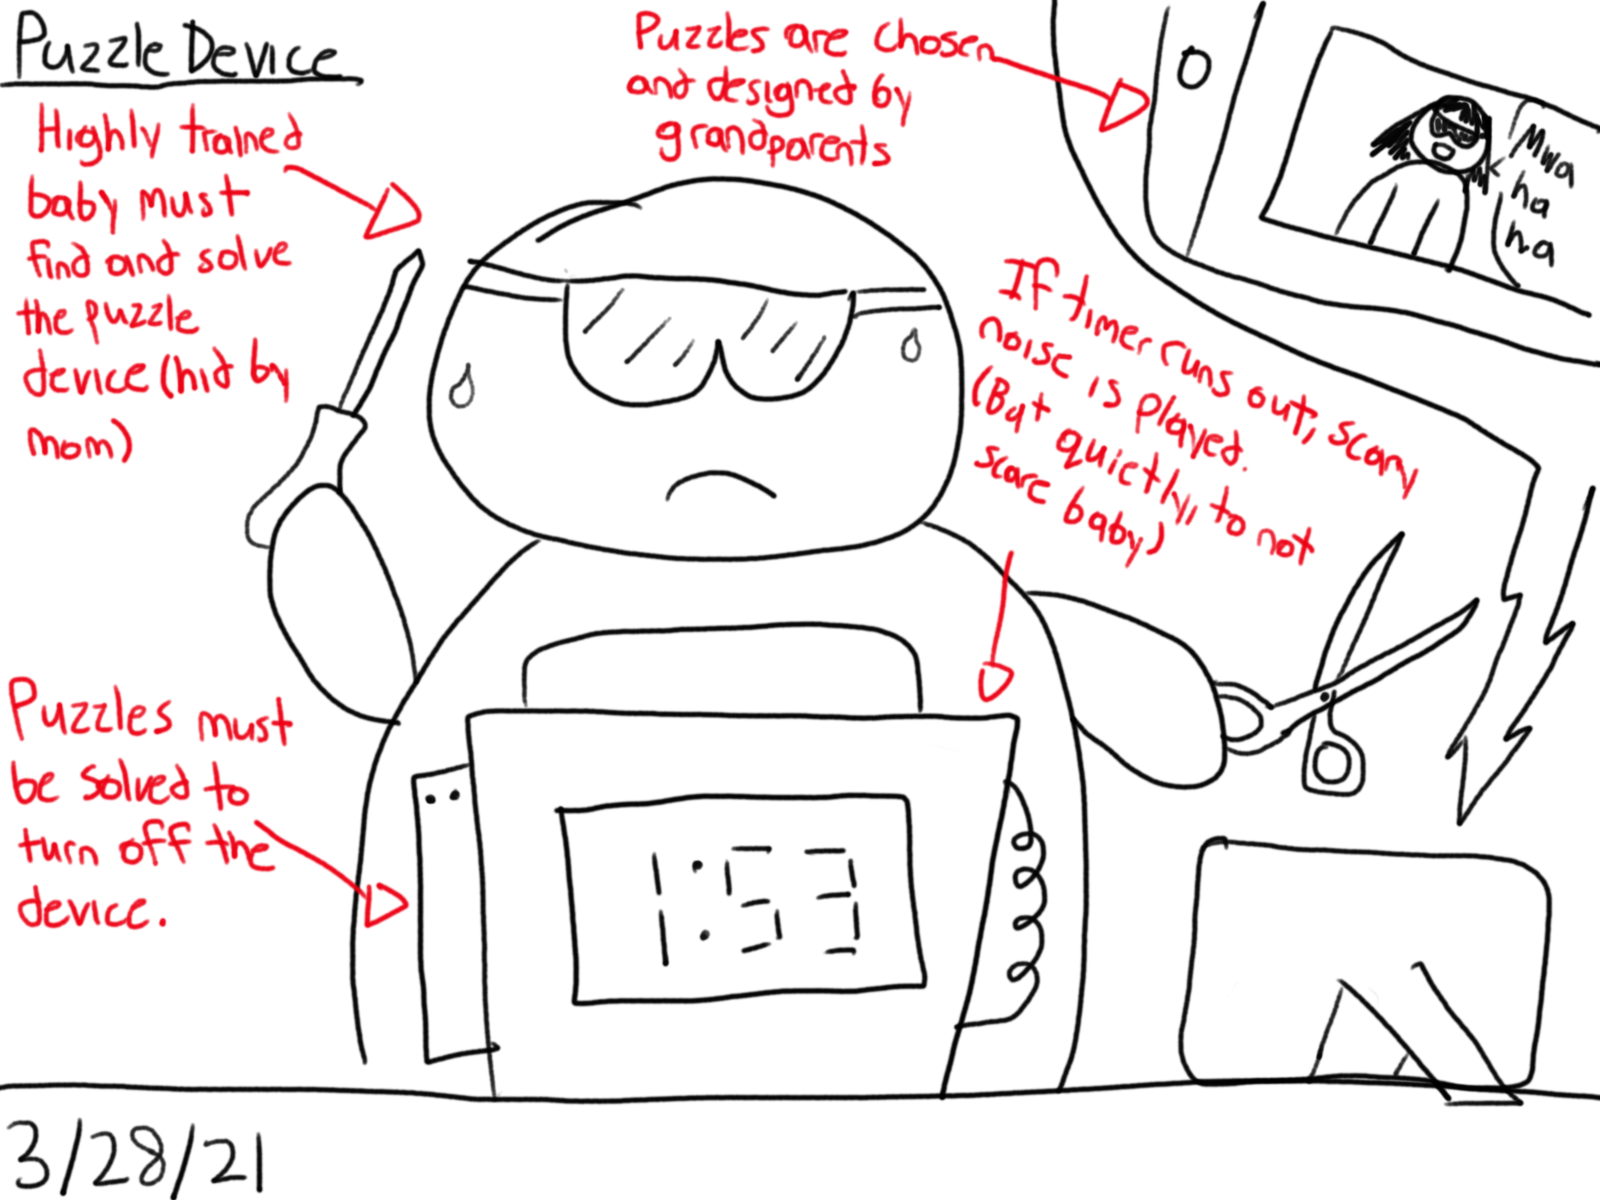 Puzzle Device
Highly trained
baby must
find and solve
the puzzle
device (hid by
mom)
Puzzles are chosen
and designed by
grandparents
O
Mwa
ha
ha
If timer runs out, scary
noise is played.
(But quietly, to not
scare baby)
Puzzles must
be solved to
turn off the
device.
1:53
3/28/21